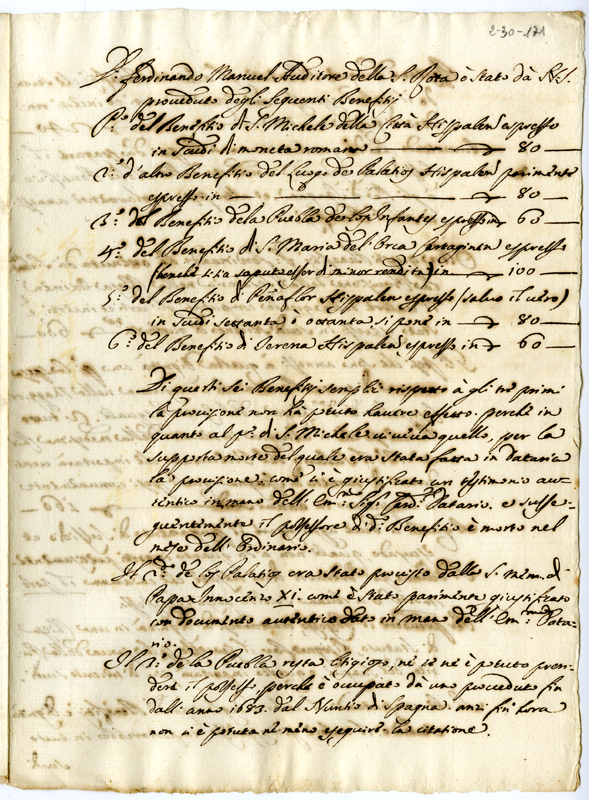 2-30-171
D. Ferdinando Manuel Auditore della S. Rota è stato dà N. S.
proveduto degli seguenti Benefitij
P.º del Benefitio di S. Michele della Città Hispalen espresso
in scudi di moneta romana — 80 —
2.º d'altro Benefitio del Luogo de Palatios Hispalen parimente
espresso in — 80 —
3.º del Benefitio dela Puebla de los Infantes espresso in 60 —
4.º del Benefitio di S. Maria del Orca Cartaginen espresso
(benche si sia saputo esser di minor rendita) in — 100 —
5.º del Benefitio di Peñaflor Hispalen espresso (salvo il vero)
in scudi settanta ò ottanta si pone in — 80 —
6.º del Benefitio di Gerena Hispalen espresso in — 60 —
Di questi sei Benefitij semplici rispetto à gli tre primi
la provisione non hà potuto havere effetto. perche in
quanto al p.º di S. Michele viveva quello, per la
supposta morte del quale era stata fatta in Dataria
la provisione, come si è giustificato con testimonio au-
tentico in mano dell' Em.mo Sig.r Card. Datario. e susse-
guentemente il possessore di d.º Benefitio è morto nel
mese dell' Ordinario.
Il 2.do de los Palatios era stato provisto dalla S. mem. di
Papa Innocenzo XI. come è stato parimente giustificato
con documento autentico dato in mano dell' Em.mo Data-
rio.
Il 3.º de la Puebla resta litigioso, ne se ne è potuto pren-
dere il possesso, perche è occupato dà uno proveduto fin
dall' anno 1683. dal Nuntio di Spagna. anzi fin hora
non si è potuta ne meno eseguire la citatione.